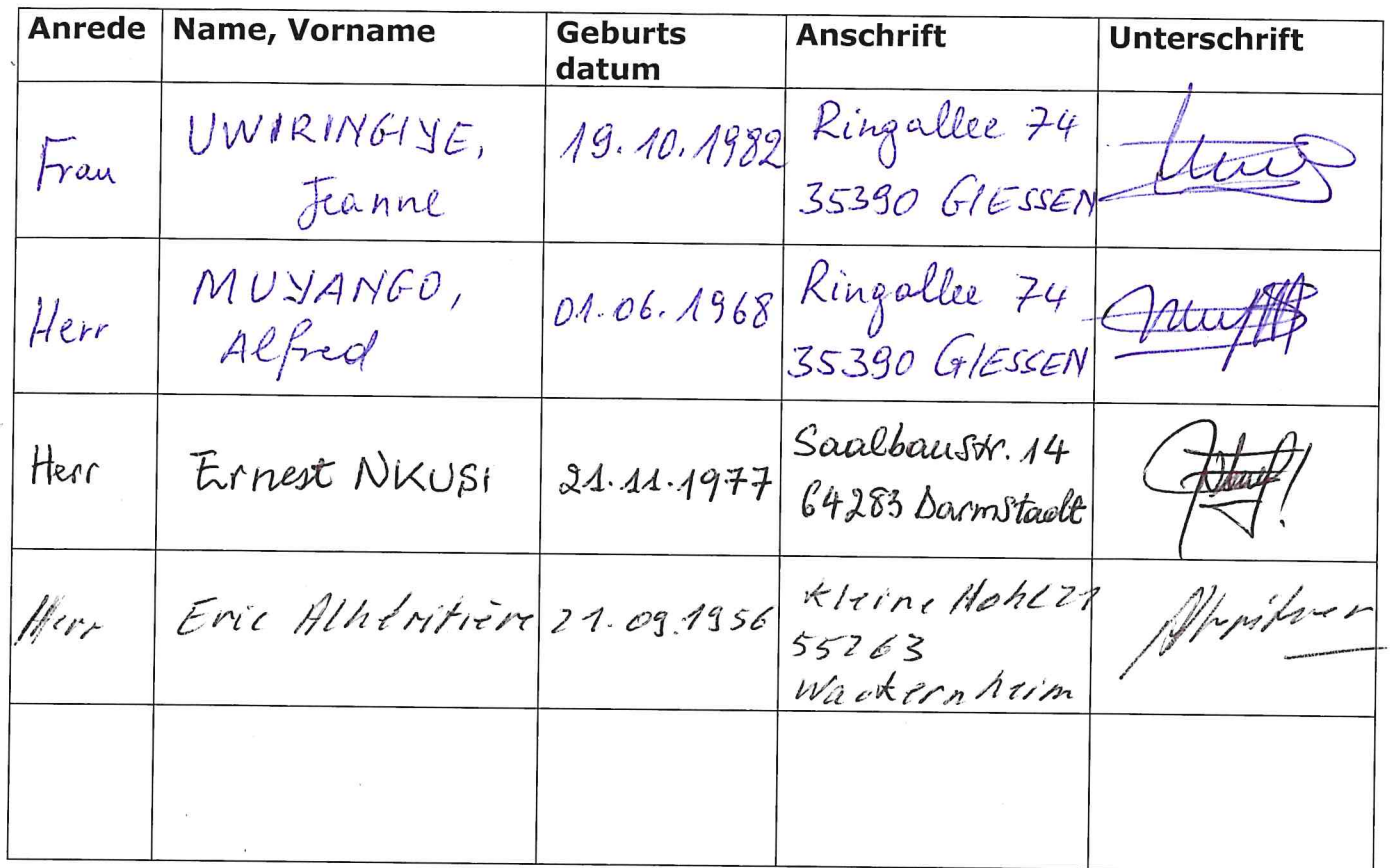 Anrede Name, Vorname Geburts datum Anschrift Unterschrift
Frau UWIRINGIYE, 19.10.1982 Ringallee 74
Jeanne 35390 GIESSEN
Herr MUYANGO, 01.06.1968 Ringallee 74
Alfred 35390 GIESSEN
Herr Ernest NKUSI 21.11.1977 Saalbaustr. 14
64283 Darmstadt
Herr Eric Alhéritière 21.09.1956 Kleine Hohl 21
55263
Wackernheim